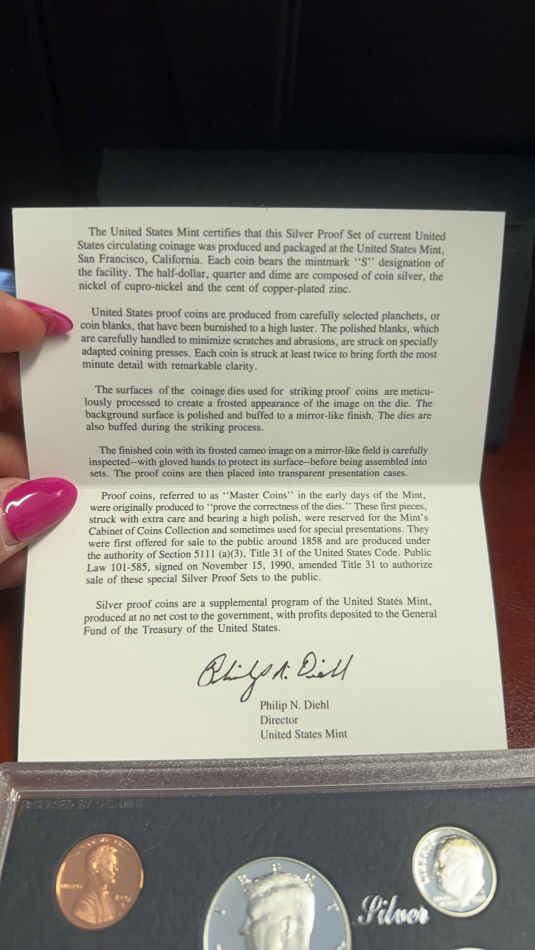 The United States Mint certifies that this Silver Proof Set of current United
States circulating coinage was produced and packaged at the United States Mint,
San Francisco, California. Each coin bears the mintmark ‘‘S’’ designation of
the facility. The half-dollar, quarter and dime are composed of coin silver, the
nickel of cupro-nickel and the cent of copper-plated zinc.
United States proof coins are produced from carefully selected planchets, or
coin blanks, that have been burnished to a high luster. The polished blanks, which
are carefully handled to minimize scratches and abrasions, are struck on specially
adapted coining presses. Each coin is struck at least twice to bring forth the most
minute detail with remarkable clarity.
The surfaces of the coinage dies used for striking proof coins are meticu-
lously processed to create a frosted appearance of the image on the die. The
background surface is polished and buffed to a mirror-like finish. The dies are
also buffed during the striking process.
The finished coin with its frosted cameo image on a mirror-like field is carefully
inspected--with gloved hands to protect its surface--before being assembled into
sets. The proof coins are then placed into transparent presentation cases.
Proof coins, referred to as ‘‘Master Coins’’ in the early days of the Mint,
were originally produced to ‘‘prove the correctness of the dies.’’ These first pieces,
struck with extra care and bearing a high polish, were reserved for the Mint's
Cabinet of Coins Collection and sometimes used for special presentations. They
were first offered for sale to the public around 1858 and are produced under
the authority of Section 5111 (a)(3), Title 31 of the United States Code. Public
Law 101-585, signed on November 15, 1990, amended Title 31 to authorize
sale of these special Silver Proof Sets to the public.
Silver proof coins are a supplemental program of the United States Mint,
produced at no net cost to the government, with profits deposited to the General
Fund of the Treasury of the United States.
Philip N. Diehl
Philip N. Diehl
Director
United States Mint
Silver